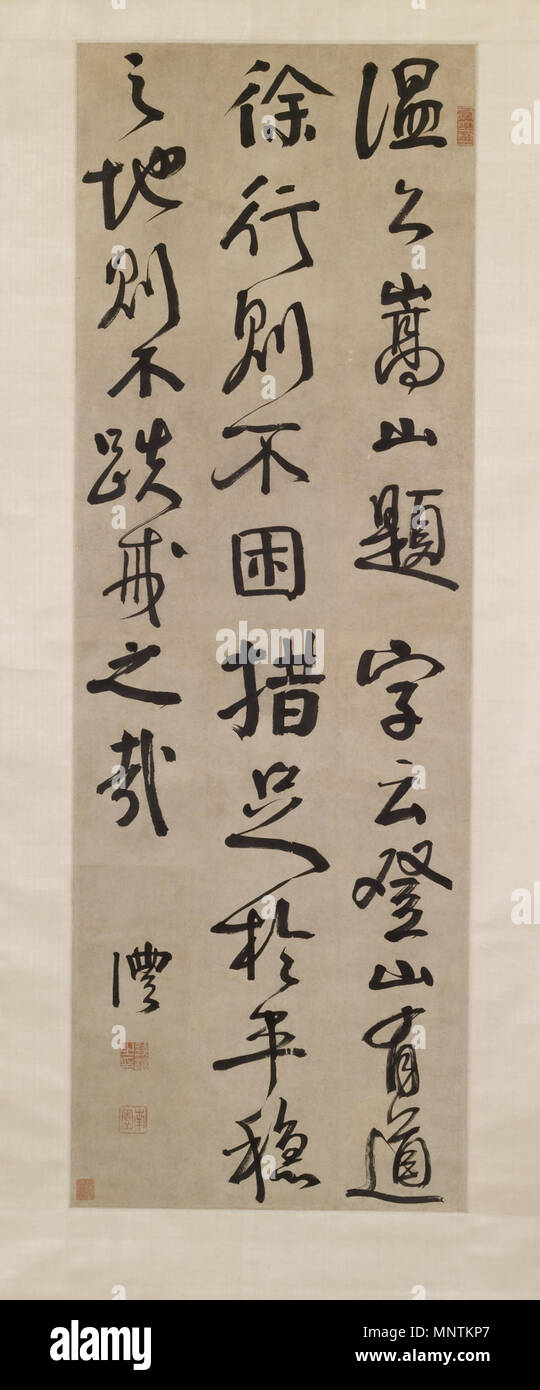 温公嵩山題字云登山有道
徐行則不困措足於平穩
之地則不跌戒之哉
灃
alamy
Image ID: MNTKP7
www.alamy.com